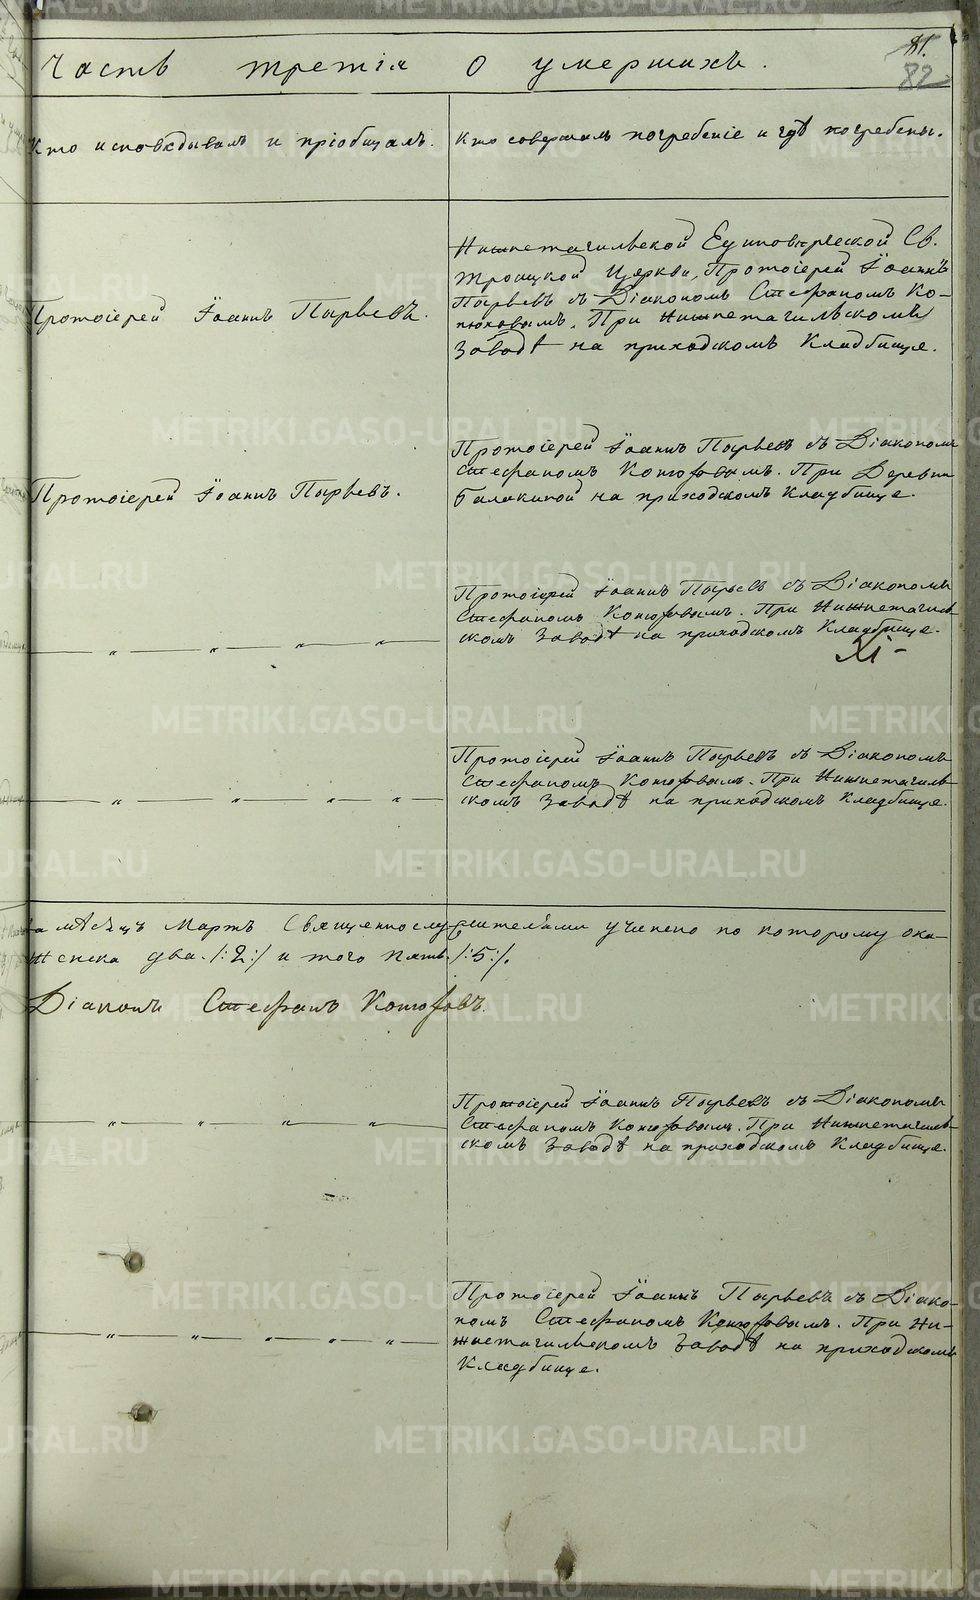 81.
82
Часть третія о умершихъ.
Кто исповѣдывалъ и пріобщалъ.
Кто совершалъ погребеніе и гдѣ погребены.
Протоіерей Іоаннъ Пырьевъ.
Нижнетагильской Единовѣрческой Св.
Троицкой Церкви, Протоіерей Іоаннъ
Пырьевъ съ Діакономъ Стефаномъ Ко-
нюховымъ. При Нижнетагильскомъ
Заводѣ на приходскомъ Кладбище.
Протоіерей Іоаннъ Пырьевъ.
Протоіерей Іоаннъ Пырьевъ съ Діакономъ
Стефаномъ Конюховымъ. При Деревни
Балакиной на приходскомъ Кладбище.
— " — " — " — " —
Протоіерей Іоаннъ Пырьевъ съ Діакономъ
Стефаномъ Конюховымъ. При Нижнетагиль-
скомъ Заводѣ на приходскомъ Кладбище.
— " — " — " — " —
Протоіерей Іоаннъ Пырьевъ съ Діакономъ
Стефаномъ Конюховымъ. При Нижнетагиль-
скомъ Заводѣ на приходскомъ Кладбище.
за мѣсяцъ Мартъ Священнослужителями учинено по которому ока-
женска два /:2:/ и того пять /:5:/.
Діаконъ Стефанъ Конюховъ.
— " — " — " — " —
Протоіерей Іоаннъ Пырьевъ съ Діакономъ
Стефаномъ Конюховымъ. При Нижнетагиль-
скомъ Заводѣ на приходскомъ Кладбище.
— " — " — " — " — " —
Протоіерей Іоаннъ Пырьевъ съ Діако-
номъ Стефаномъ Конюховымъ. При Ни-
жнетагильскомъ Заводѣ на приходскомъ
Кладбище.
METRIKI.GASO-URAL.RU